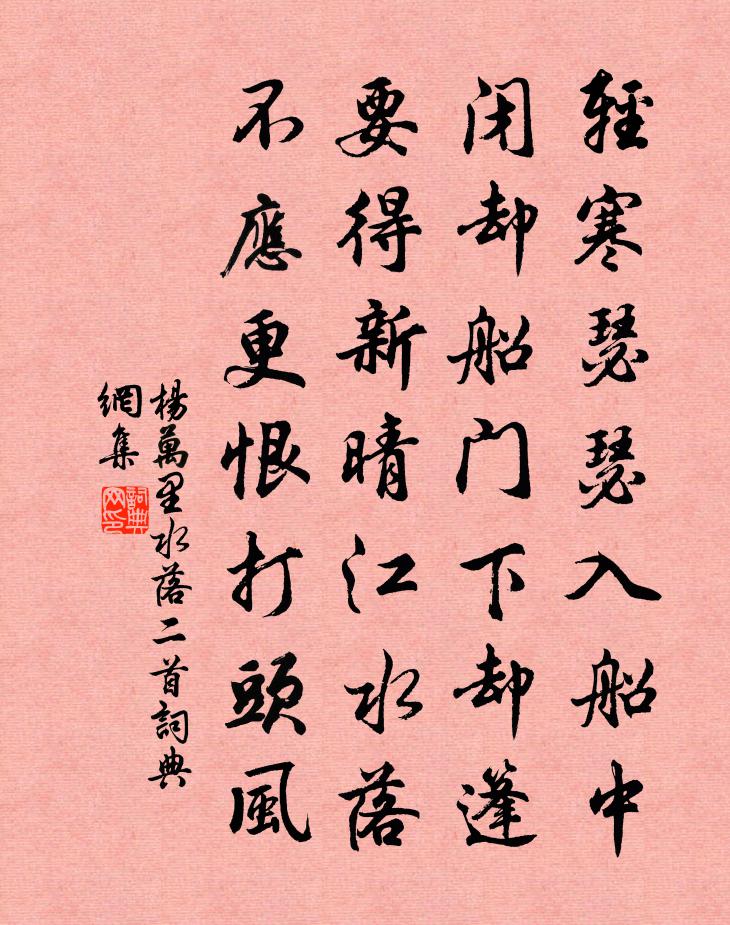 輕寒瑟瑟入船中
闭却船门下却篷
要得新晴江水落
不應更恨打頭風
楊萬里水落二首詞典
網集
詞典網印